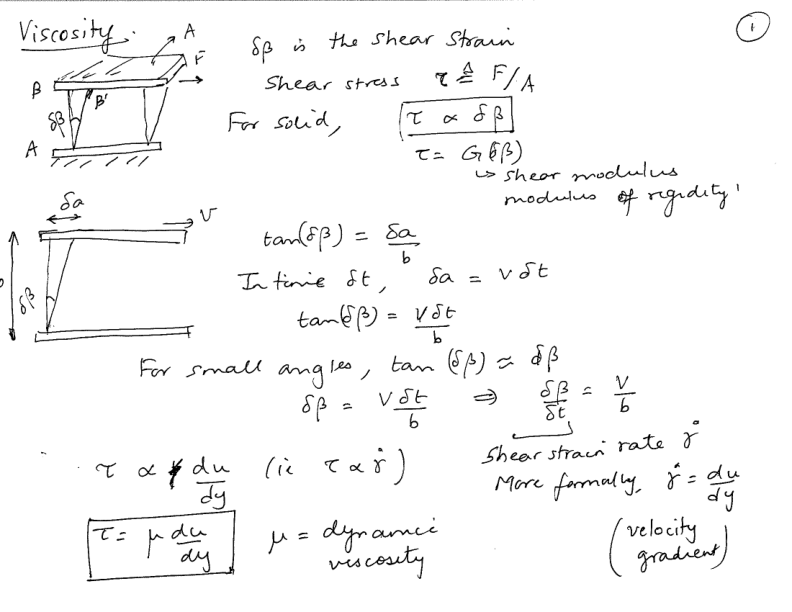 Viscosity.
1
A
F
B
B'
δβ
A
δβ is the shear strain
Shear stress τ ≜ F/A
For solid, τ ∝ δβ
τ = G(δβ)
↳ shear modulus
modulus of regidity'
δa
V
δβ
tan(δβ) = δa/b
In time δt, δa = V δt
tan(δβ) = Vδt/b
For small angles, tan (δβ) ≈ δβ
δβ = Vδt/b ⇒ δβ/δt = V/b
Shear strain rate γ̇
τ ∝ du/dy (ie τ ∝ γ̇)
More formally, γ̇ = du/dy
(velocity gradient)
τ = μ du/dy
μ = dynamic
viscosity